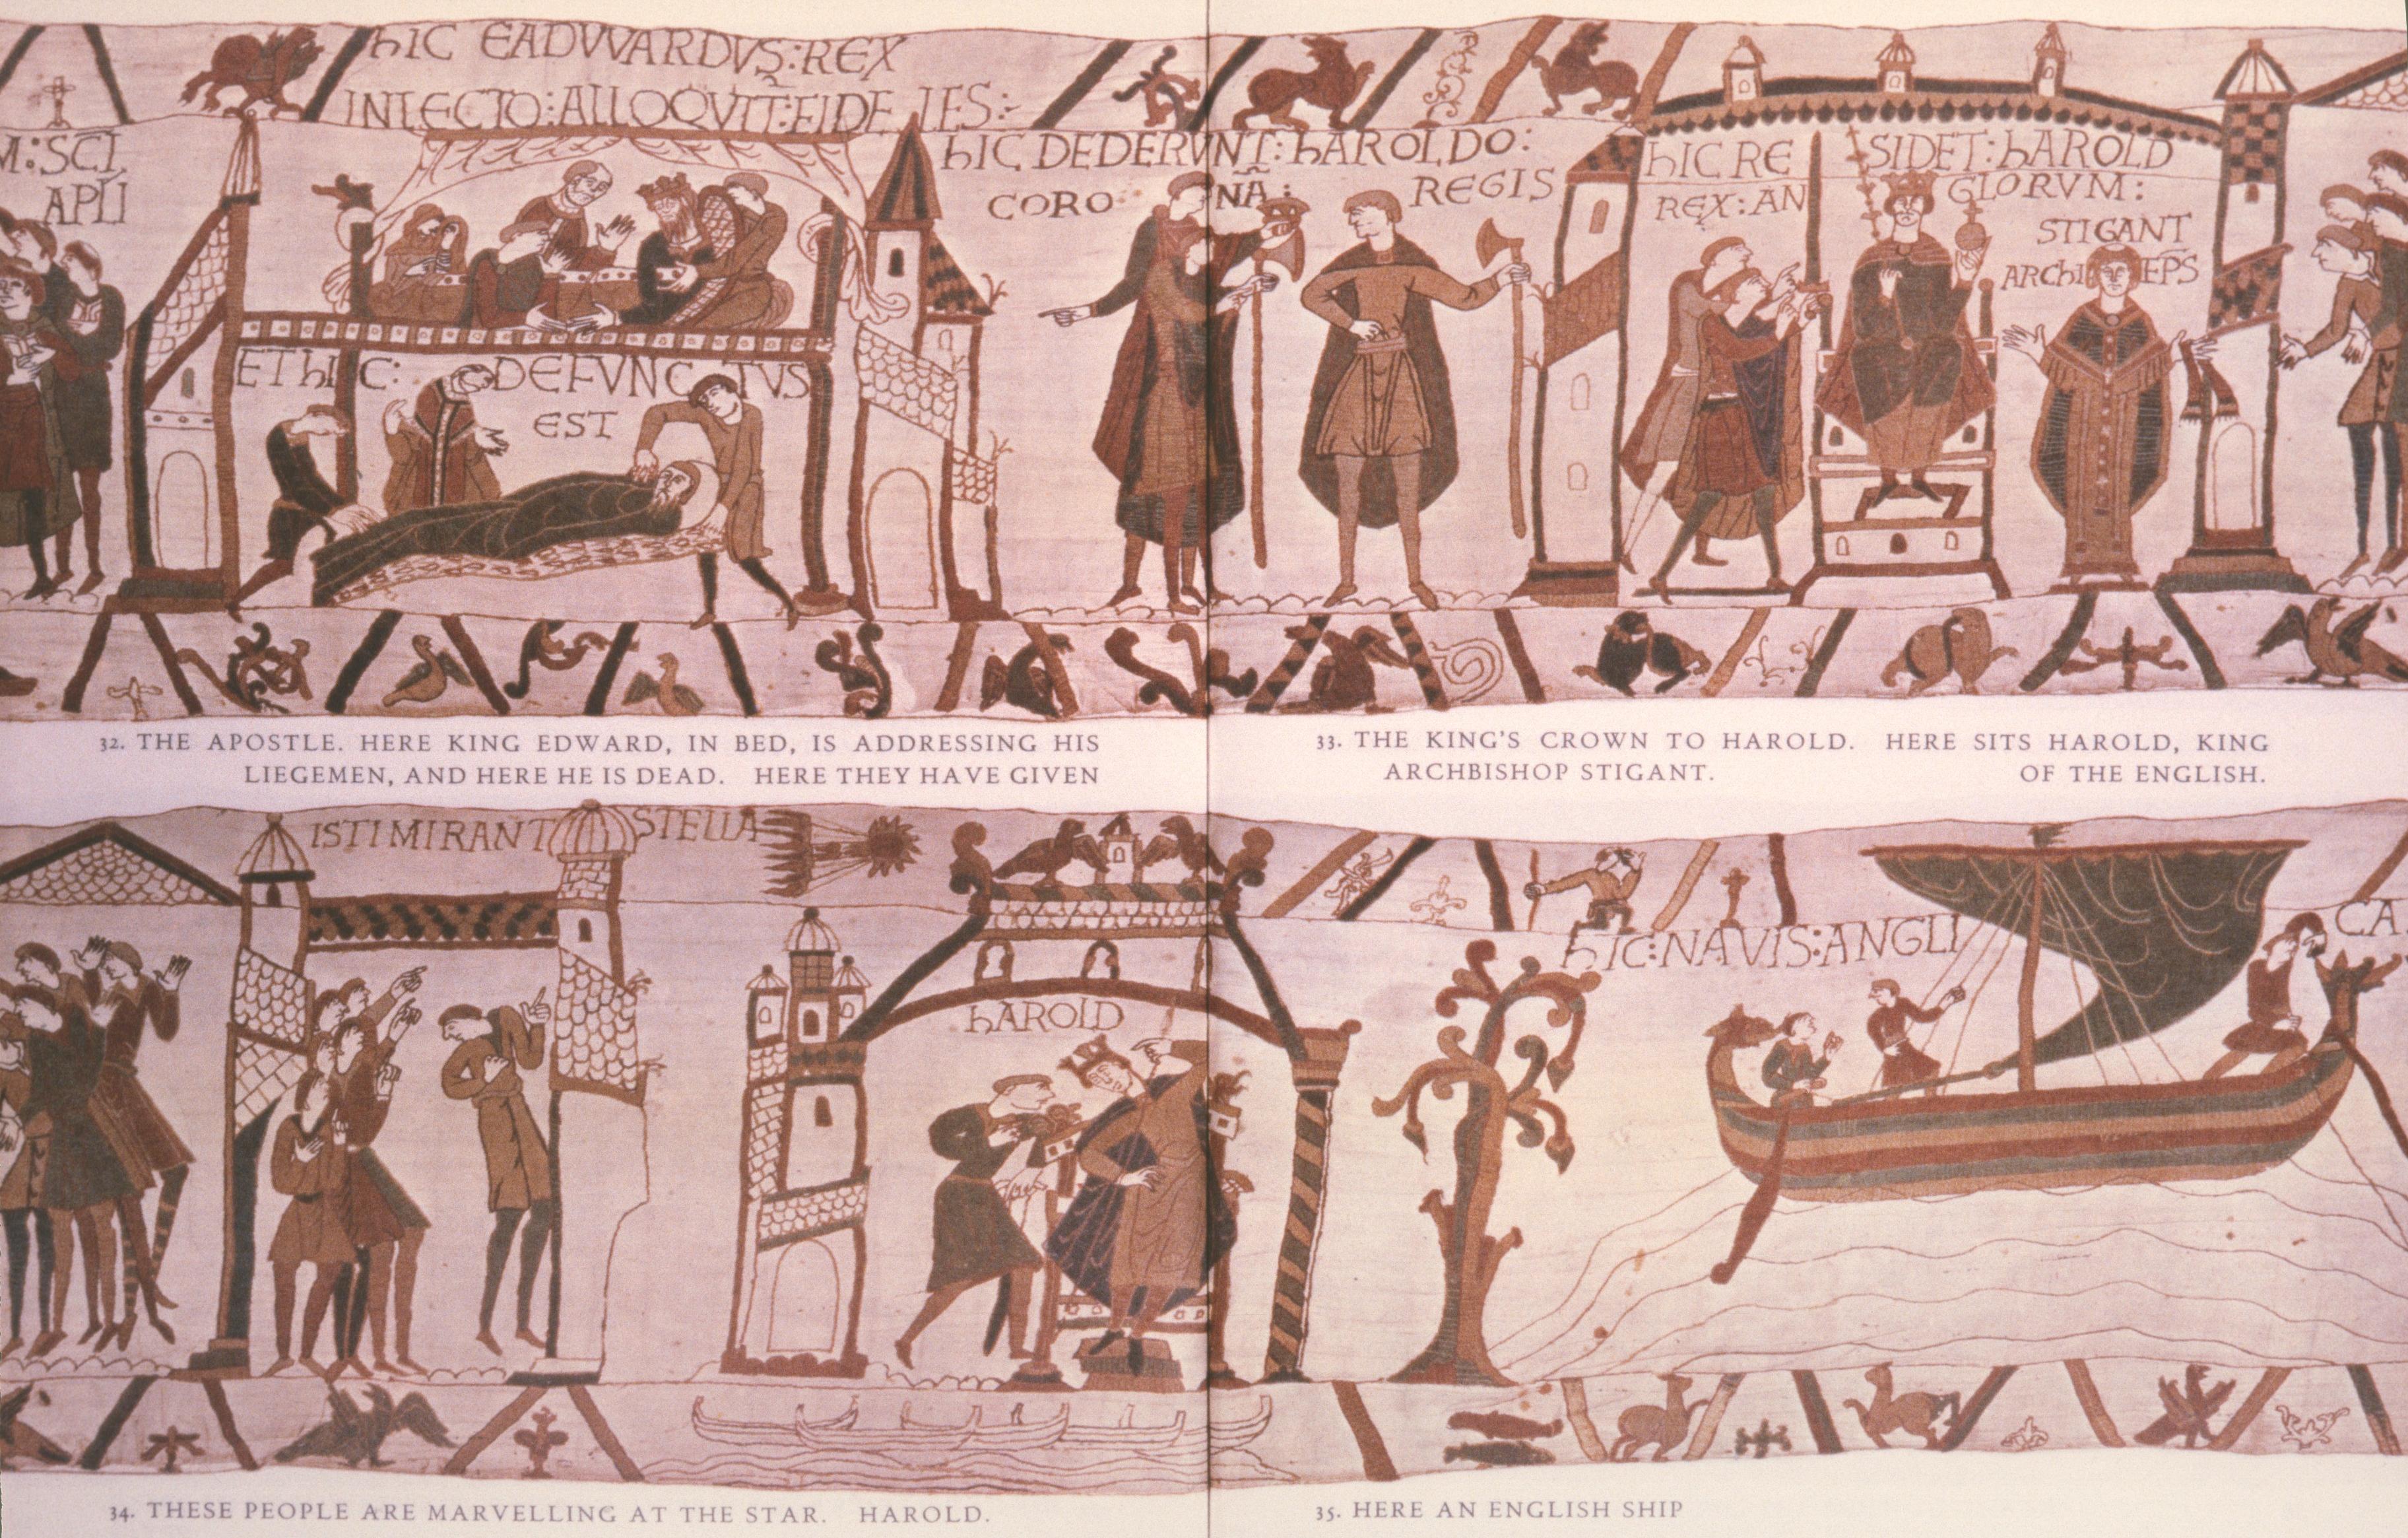 hIC EADVVARDVS:REX
INLECTO:ALLOQVIT:FIDELES:
M:SCI
APLI
hIC DEDERVNT:hAROLDO:
CORONA: REGIS
hIC RESIDET:hAROLD
REX:ANGLORVM:
STIGANT
ARCHIEPS
ET hIC: DEFVNCTVS
EST
32. THE APOSTLE. HERE KING EDWARD, IN BED, IS ADDRESSING HIS
LIEGEMEN, AND HERE HE IS DEAD. HERE THEY HAVE GIVEN
33. THE KING'S CROWN TO HAROLD. HERE SITS HAROLD, KING
ARCHBISHOP STIGANT. OF THE ENGLISH.
ISTI MIRANT STELLA
hAROLD
hIC:NAVIS:ANGLI
CA
34. THESE PEOPLE ARE MARVELLING AT THE STAR. HAROLD.
35. HERE AN ENGLISH SHIP